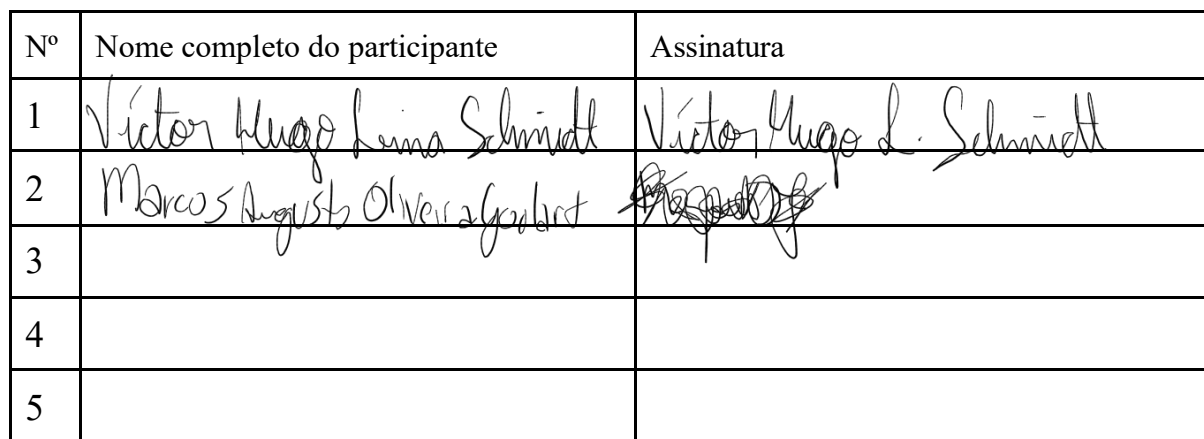 Nº Nome completo do participante Assinatura
1 Victor Hugo Lima Schmidt Victor Hugo L. Schmidt
2 Marcos Augusto Oliveira Goulart
3
4
5